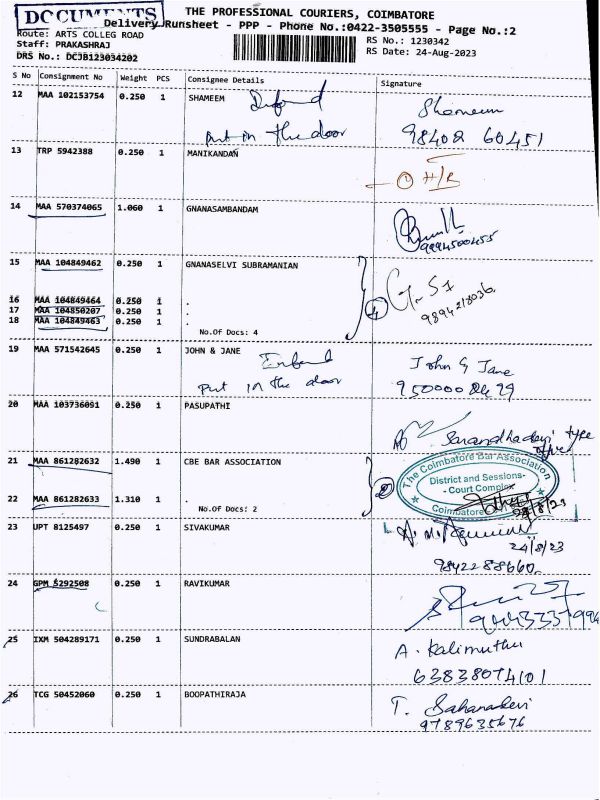 DOCUMENTS
THE PROFESSIONAL COURIERS, COIMBATORE
Delivery Runsheet - PPP - Phone No.:0422-3505555 - Page No.:2
Route: ARTS COLLEG ROAD
Staff: PRAKASHRAJ
DRS No.: DCJB123034202
RS No.: 1230342
RS Date: 24-Aug-2023
S No Consignment No Weight PCS Consignee Details Signature
12 MAA 102153754 0.250 1 SHAMEEM Shameem
put in the door 98402 60451
13 TRP 5942388 0.250 1 MANIKANDAN
1 H/R
14 MAA 570374065 1.060 1 GNANASAMBANDAM
9994500455
15 MAA 104849462 0.250 1 GNANASELVI SUBRAMANIAN
16 MAA 104849464 0.250 1 . 4
17 MAA 104850207 0.250 1 .
18 MAA 104849463 0.250 1 .
No.Of Docs: 4
19 MAA 571542645 0.250 1 JOHN & JANE John & Jane
put in the door
20 MAA 103736091 0.250 1 PASUPATHI
type
21 MAA 861282632 1.490 1 CBE BAR ASSOCIATION
The Coimbatore Bar Association
District and Sessions
Court Complex
Coimbatore
2
22 MAA 861282633 1.310 1 .
No.Of Docs: 2
23 UPT 8125497 0.250 1 SIVAKUMAR
24/8/23
9842288660
24 GPM 5292508 0.250 1 RAVIKUMAR
25 IXM 504289171 0.250 1 SUNDRABALAN A. Kalimuthu
63838074101
26 TCG 50452060 0.250 1 BOOPATHIRAJA T. Sahanadevi
9789635676